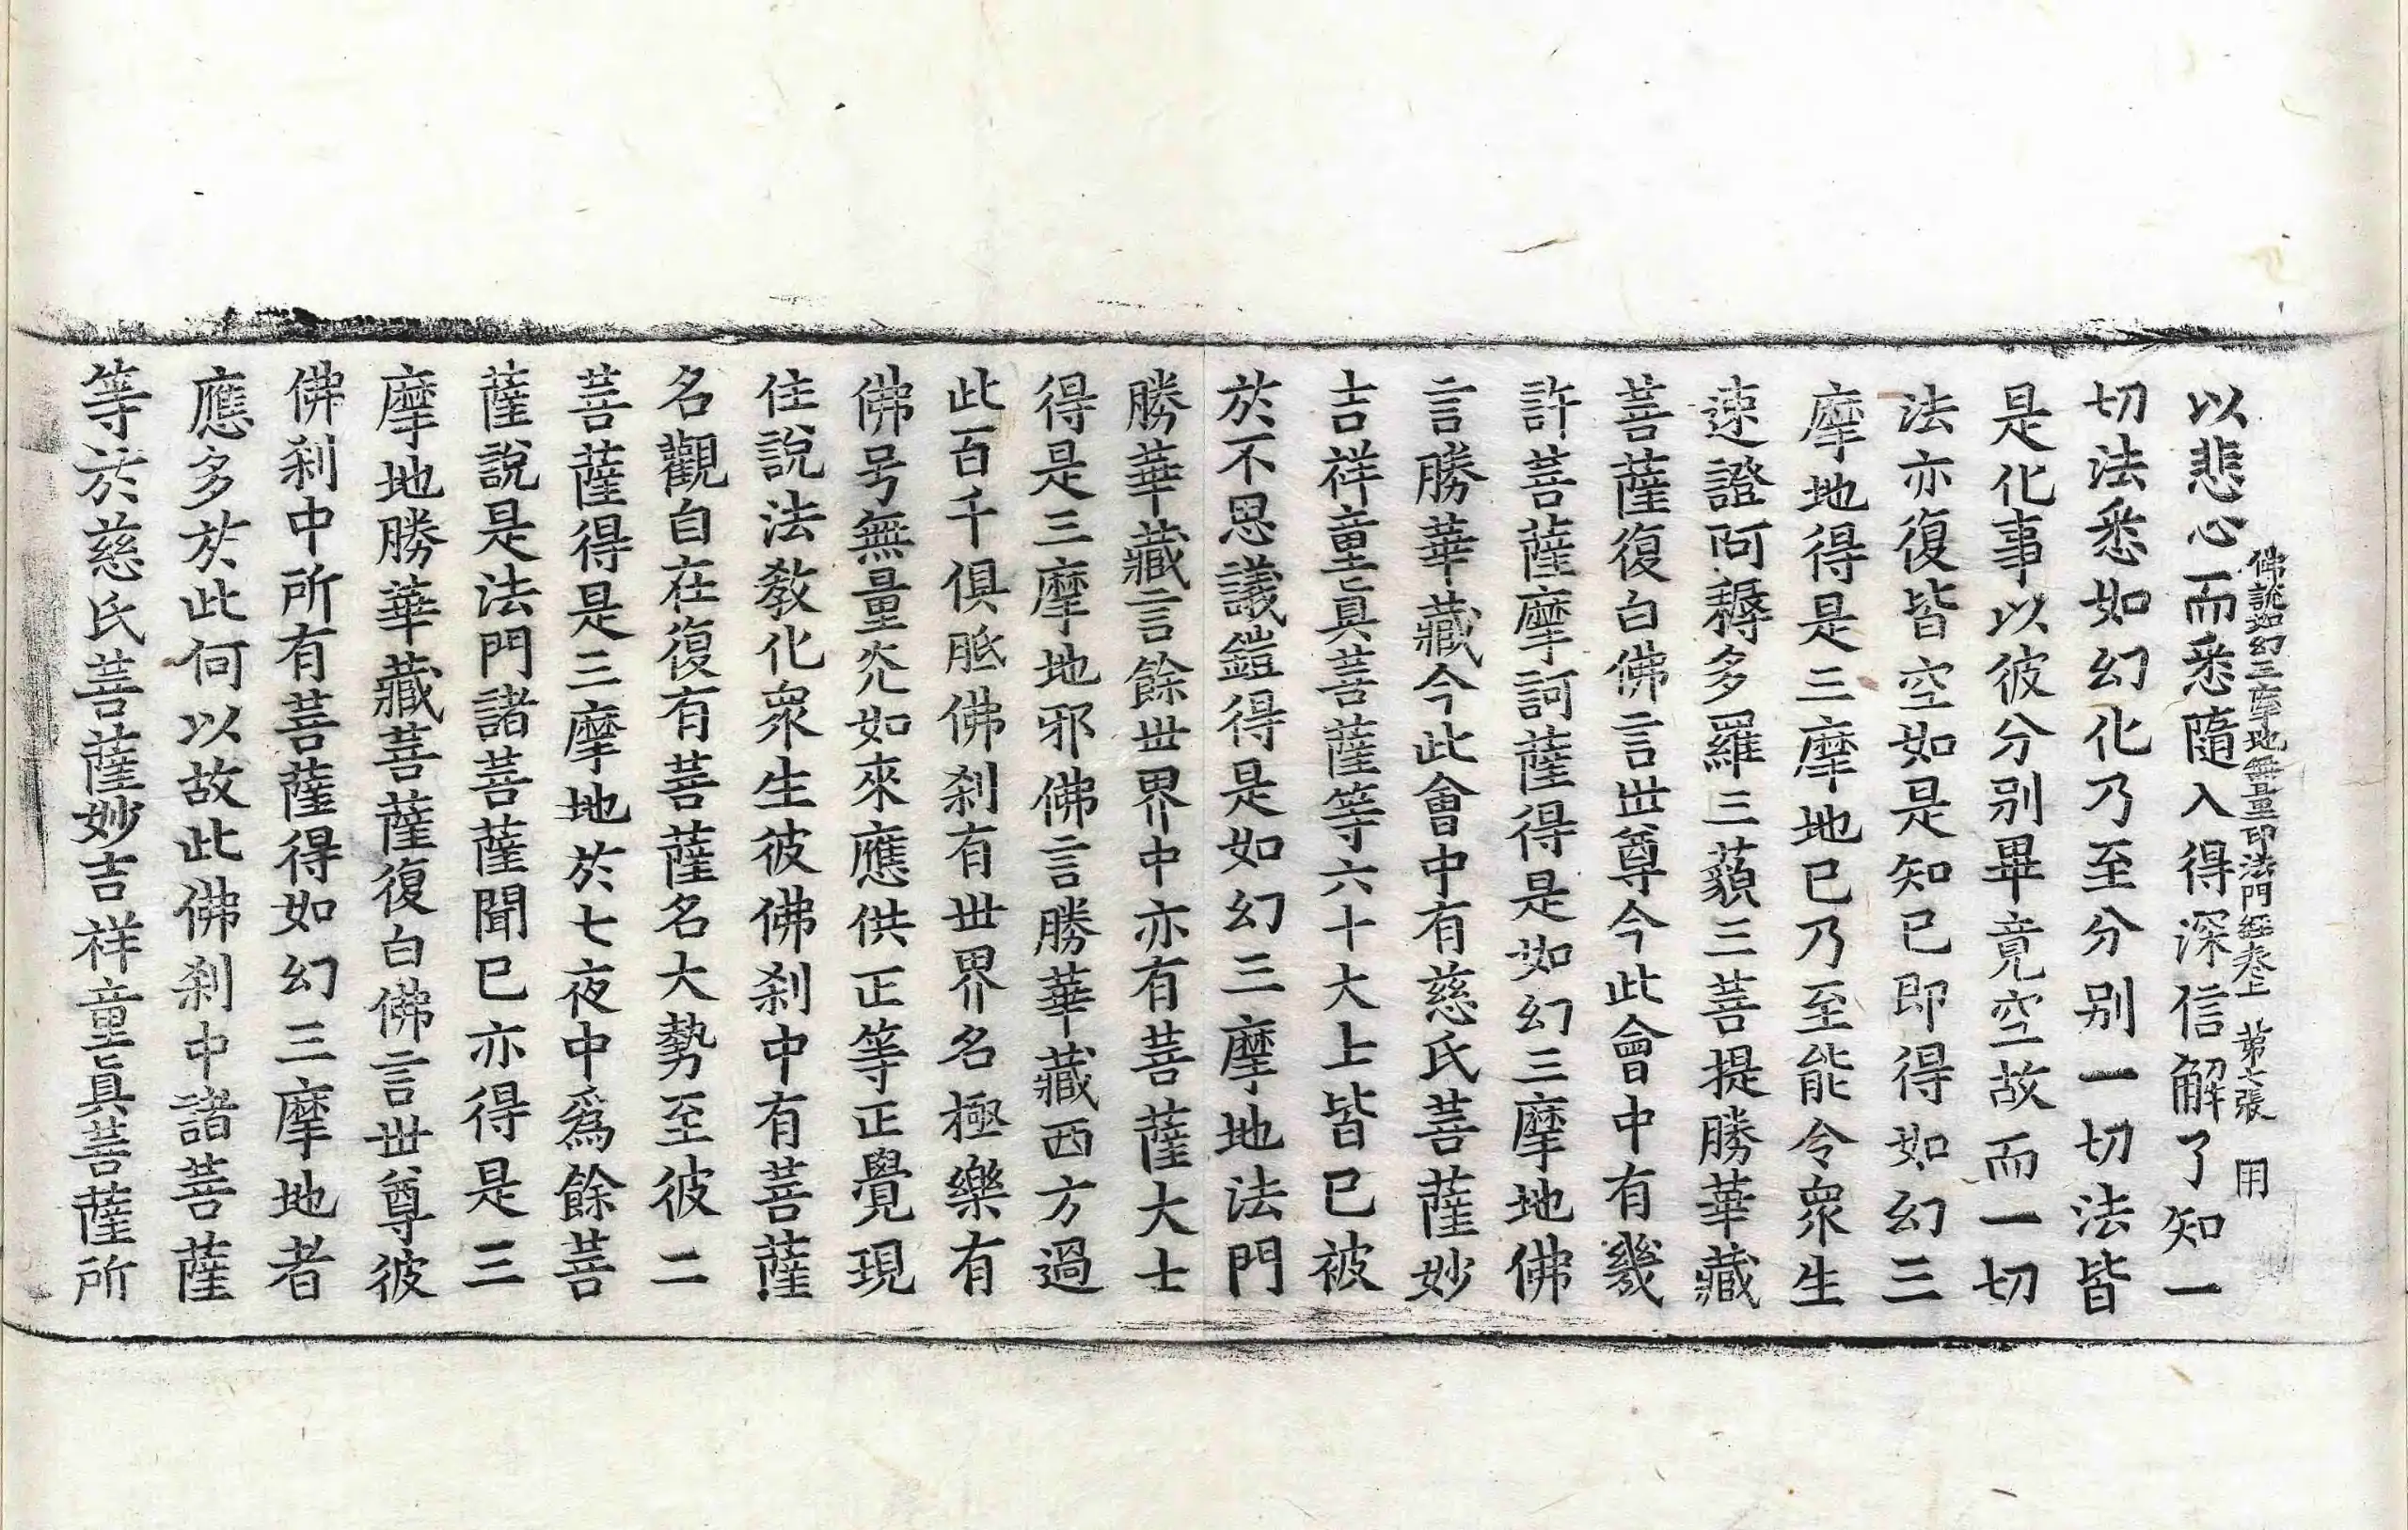 佛說如幻三摩地無量印法門經卷上 第六張 用
以悲心而悉隨入得深信解了知一
切法悉如幻化乃至分別一切法皆
是化事以彼分別畢竟空故而一切
法亦復皆空如是知已即得如幻三
摩地得是三摩地已乃至能令衆生
速證阿耨多羅三藐三菩提勝華藏
菩薩復白佛言世尊今此會中有幾
許菩薩摩訶薩得是如幻三摩地佛
言勝華藏今此會中有慈氏菩薩妙
吉祥童眞菩薩等六十大上皆已被
於不思議鎧得是如幻三摩地法門
勝華藏言餘世界中亦有菩薩大士
得是三摩地邪佛言勝華藏西方過
此百千俱胝佛刹有世界名極樂有
佛号無量光如來應供正等正覺現
住說法教化衆生彼佛刹中有菩薩
名觀自在復有菩薩名大勢至彼二
菩薩得是三摩地於七夜中爲餘菩
薩說是法門諸菩薩聞已亦得是三
摩地勝華藏菩薩復白佛言世尊彼
佛刹中所有菩薩得如幻三摩地者
應多於此何以故此佛刹中諸菩薩
等於慈氏菩薩妙吉祥童眞菩薩所